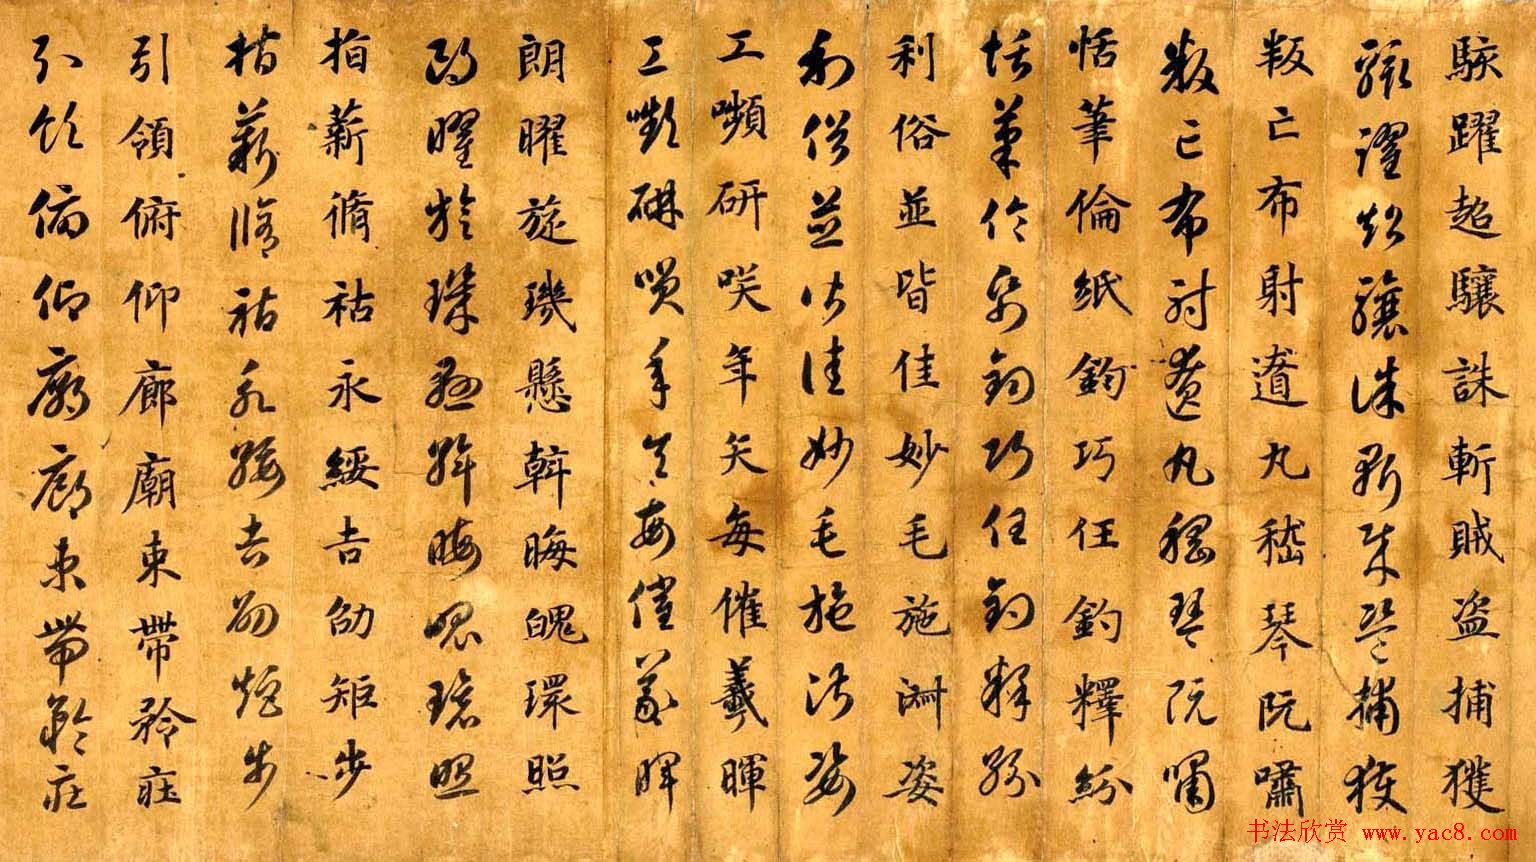 駭躍超驤誅斬賊盗捕獲
駭躍超驤誅斬賊盗捕獲
叛亡布射遼丸嵇琴阮嘯
叛亡布射遼丸嵇琴阮嘯
恬筆倫紙鈞巧任釣釋紛
恬筆倫紙鈞巧任釣釋紛
利俗並皆佳妙毛施淑姿
利俗並皆佳妙毛施淑姿
工嚬研咲年矢每催羲暉
工嚬研咲年矢每催羲暉
朗曜旋璣懸斡晦魄環照
朗曜旋璣懸斡晦魄環照
指薪脩祜永綏吉劭矩步
指薪脩祜永綏吉劭矩步
引領俯仰廊廟束帶矜莊
引領俯仰廟廊束帶矜莊
书法欣赏 www.yac8.com